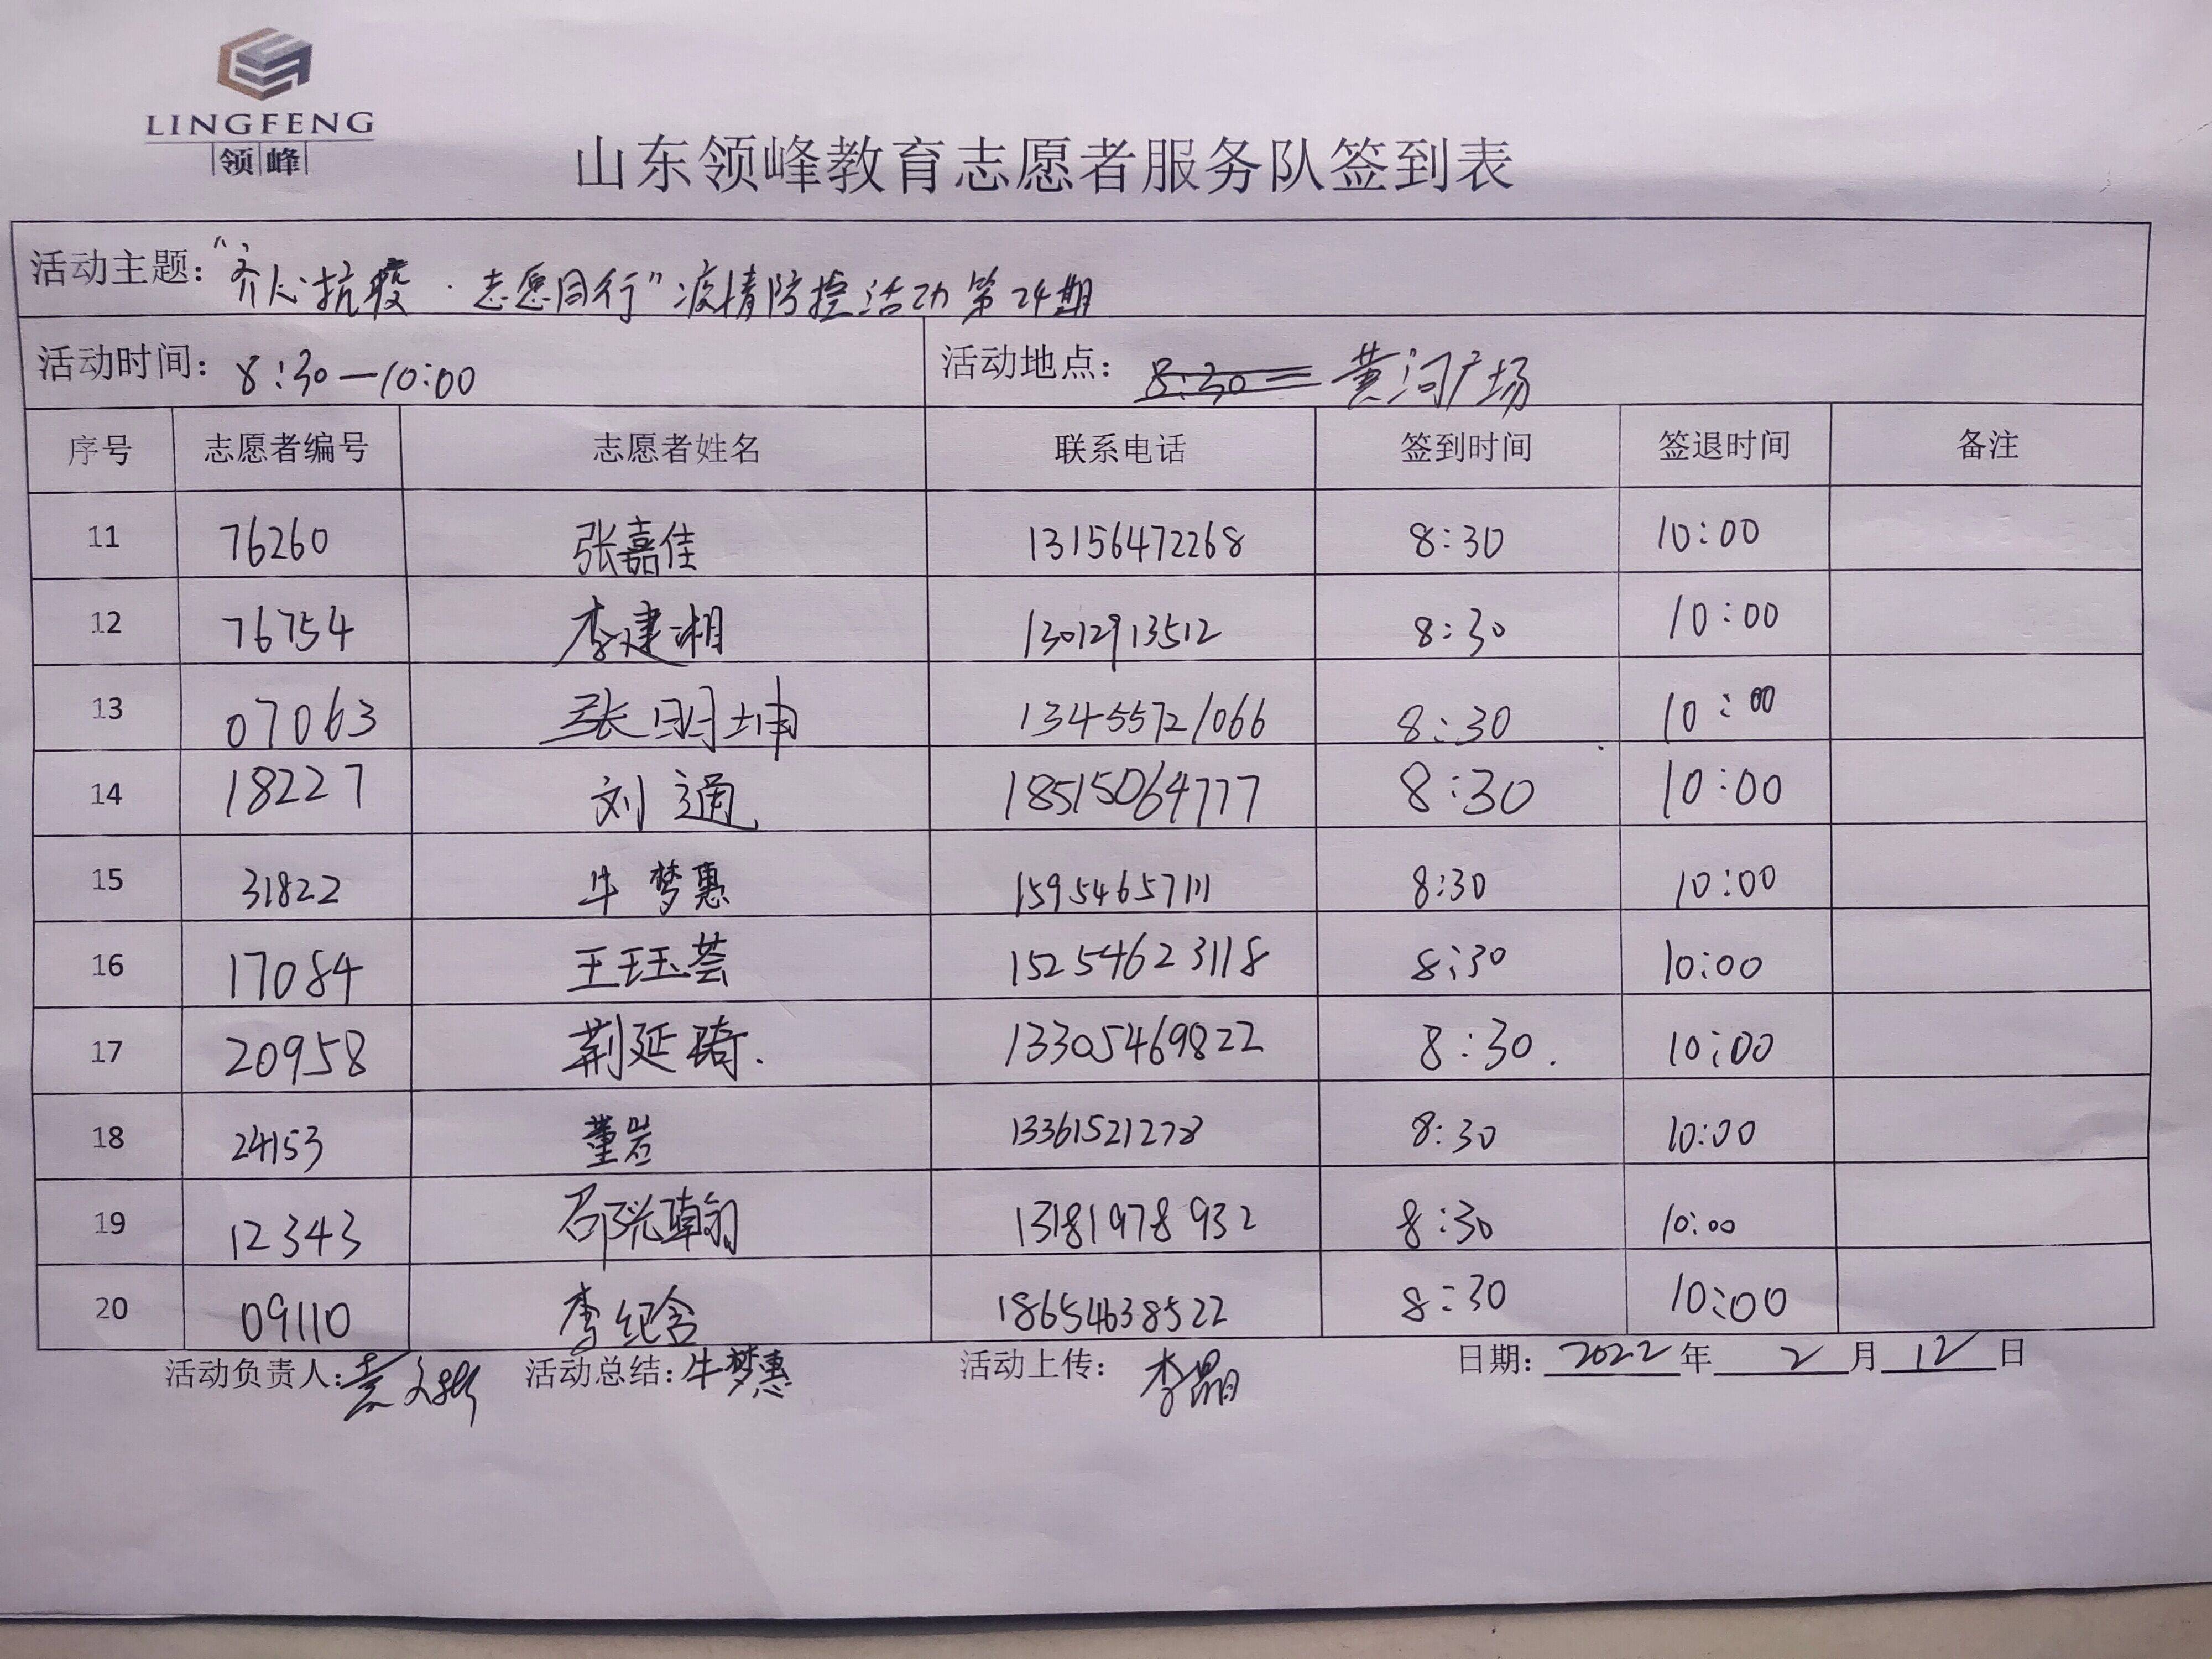 LINGFENG
领峰
山东领峰教育志愿者服务队签到表
活动主题：“齐心抗疫·志愿同行”疫情防控活动第24期
活动时间：8:30—10:00 活动地点：黄河广场
序号 志愿者编号 志愿者姓名 联系电话 签到时间 签退时间 备注
11 76260 张嘉佳 13156472268 8:30 10:00
12 76754 李建湘 13012913512 8:30 10:00
13 07063 张明坤 13455721066 8:30 10:00
14 18227 刘通 18515064777 8:30 10:00
15 31822 牛梦惠 15954657111 8:30 10:00
16 17084 王珏荟 15254623118 8:30 10:00
17 20958 荆延琦. 13305469822 8:30. 10:00
18 24153 董岩 13361521278 8:30 10:00
19 12343 邵 瀚 13181978932 8:30 10:00
20 09110 李纪含 18654638522 8:30 10:00
活动负责人： 活动总结：牛梦惠 活动上传：李晶 日期：2022年2月12日